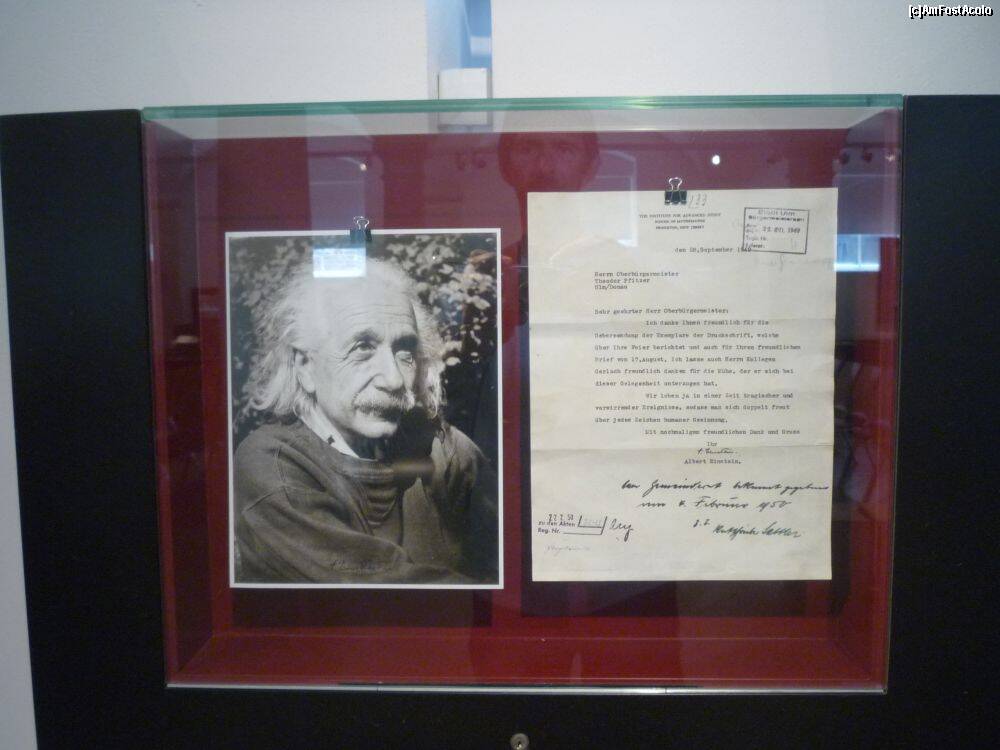 [c]AmFostAcolo
133
THE INSTITUTE FOR ADVANCED STUDY
SCHOOL OF MATHEMATICS
PRINCETON, NEW JERSEY
Stadt Ulm
Bürgermeisteramt
1949
den 28.September 1949
Herrn Oberbürgermeister
Theodor Pfitzer
Ulm/Donau
Sehr geehrter Herr Oberbürgermeister:
Ich danke Ihnen freundlich für die
Uebersendung der Exemplare der Druckschrift, welche
über Ihre Feier berichtet und auch für Ihren freundlichen
Brief von 17.August. Ich lasse auch Herrn Kollegen
Gerlach freundlich danken für die Mühe, der er sich bei
dieser Gelegenheit unterzogen hat.
Wir leben ja in einer Zeit tragischer und
verwirrender Ereignisse, sodass man sich doppelt freut
über jedes Zeichen humaner Gesinnung.
Mit nochmaligem freundlichen Dank und Gruss
Ihr
A. Einstein.
Albert Einstein.
Dem Gemeinderat bekannt gegeben
am 4. Februar 1950
zu den Akten
Reg. Nr.